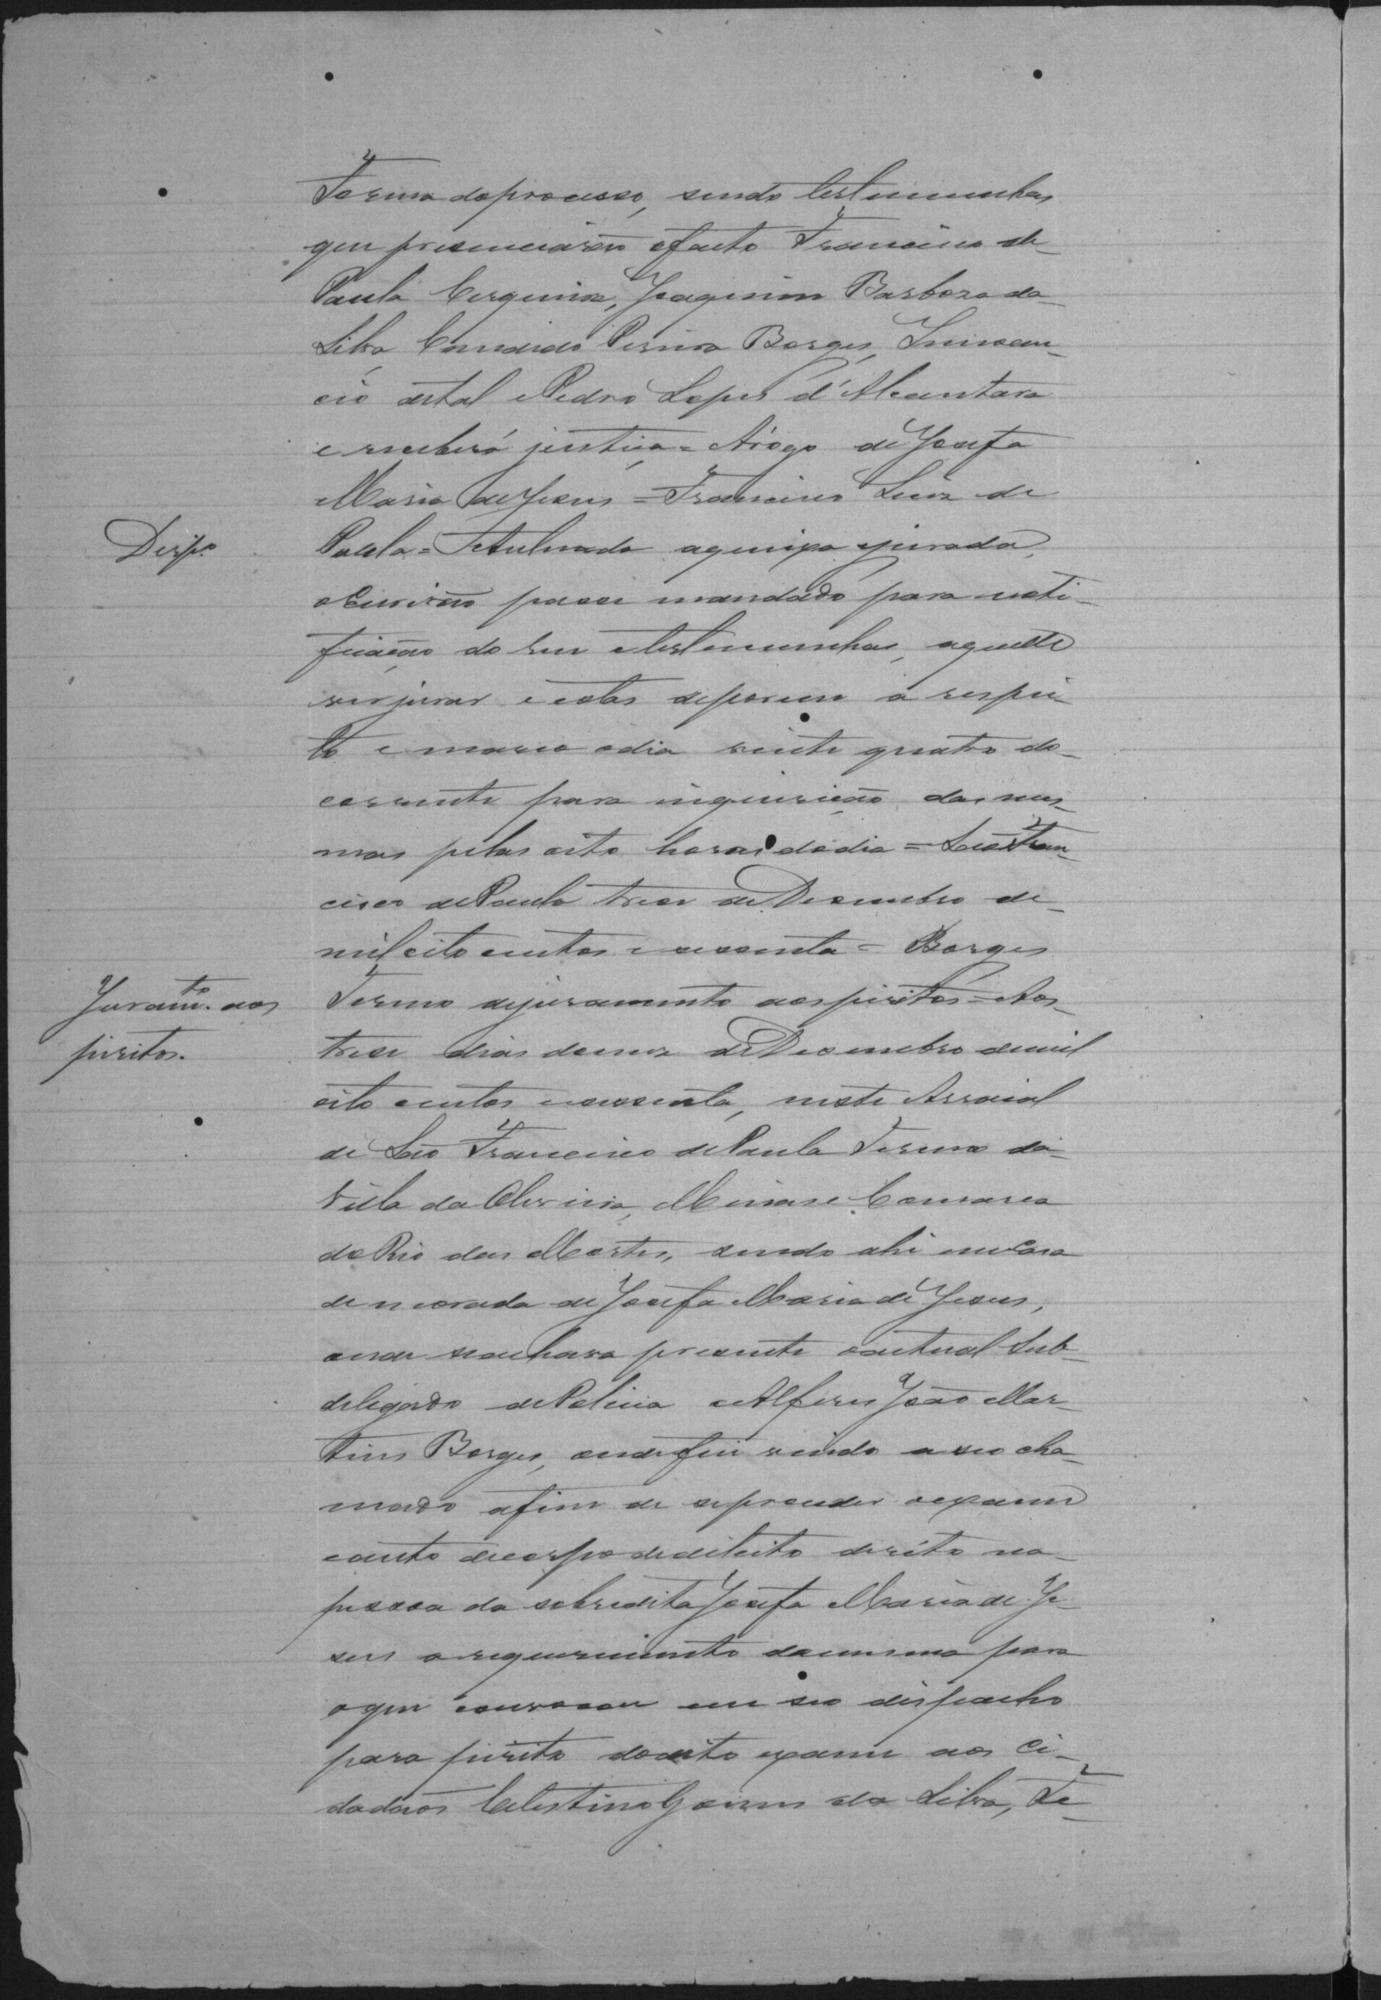 Forma do processo, sendo testemunhas
que presenciarão o facto Francisco de
Paula Cerqueira, Joaquim Barboza da
Silva, Candido Pereira Borges, Innocen-
cio de tal e Pedro Lopes d'Alcantara
e receberá justiça = Arogo de Josefa
Maria de Jesus = Francisco Luiz de
Desp.º
Paula = Autuada a queixa e jurada,
o Escrivão passe mandado para noti-
ficação do reu e testemunhas, aquelle
ver jurar e estas deporem a respei-
to e marco o dia vinte quatro do
corrente para inquirição das mes-
mas pelas oito horas do dia = São Fran-
cisco de Paula treze de Desembro de
mil oito centos e secenta = Borges
Juram.to aos
piritos.
Termo de juramento aos piritos = Aos
treze dias do mez de Desembro de mil
oito centos e secenta, neste Arraial
de São Francisco de Paula Termo da
Villa da Oliveira, Minas e Comarca
do Rio das Mortes, sendo ahi em Casa
de morada de Josefa Maria de Jesus,
onde se achava presente o actual Sub-
delegado de Policia o Alferes João Mar-
tins Borges, onde fui vindo a seo cha-
mado afim de se proceder o exame
e auto de corpo de delicto direto na
pessoa da sobredita Josefa Maria de Je-
sus a requerimento da mesma para
o que convocou em seo despacho
para pirito do auto exame aos Ci-
dadãos Celestino Gomes da Silva, Fe-